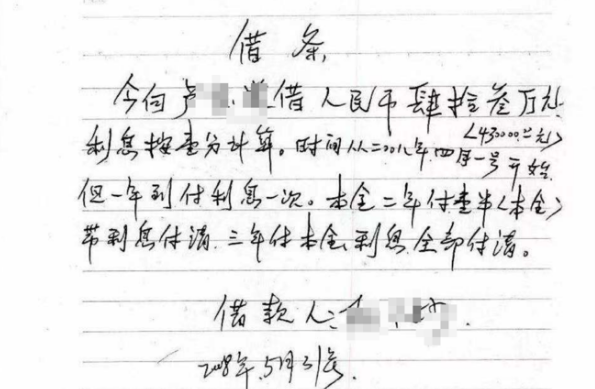 借条
今向卢借人民币肆拾叁万元
<430000.00元>
利息按壹分计算。时间从二〇〇八年四月一号开始
但一年到付利息一次。本金二年付壹半<本金>
带利息付清.三年付本金利息全部付清。
借款人:
2008年.5月31号.